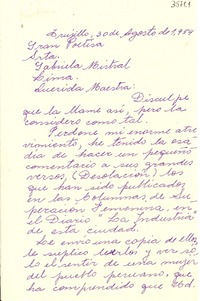 35711
Trujillo, 30 de Agosto de 1954
Gran Poetisa
Srta.
Gabriela Mistral
Lima.
Querida Maestra:
Discul pe
que la llame así, pero la
considero como tal.
Perdone mi enorme atre
vimiento, he tenido la osa
día de hacer un pequeño
comentario a sus grandes
versos, (Desolación) los
que han sido publicados
en las Columnas de Su
peración Femenina, en
el Diario "La Industria"
de esta ciudad.
Le envío una copia de ellos
le suplico leerlos y vea so
lo el sentir de una mujer
del pueblo peruano, que
ha comprendido que Ud.